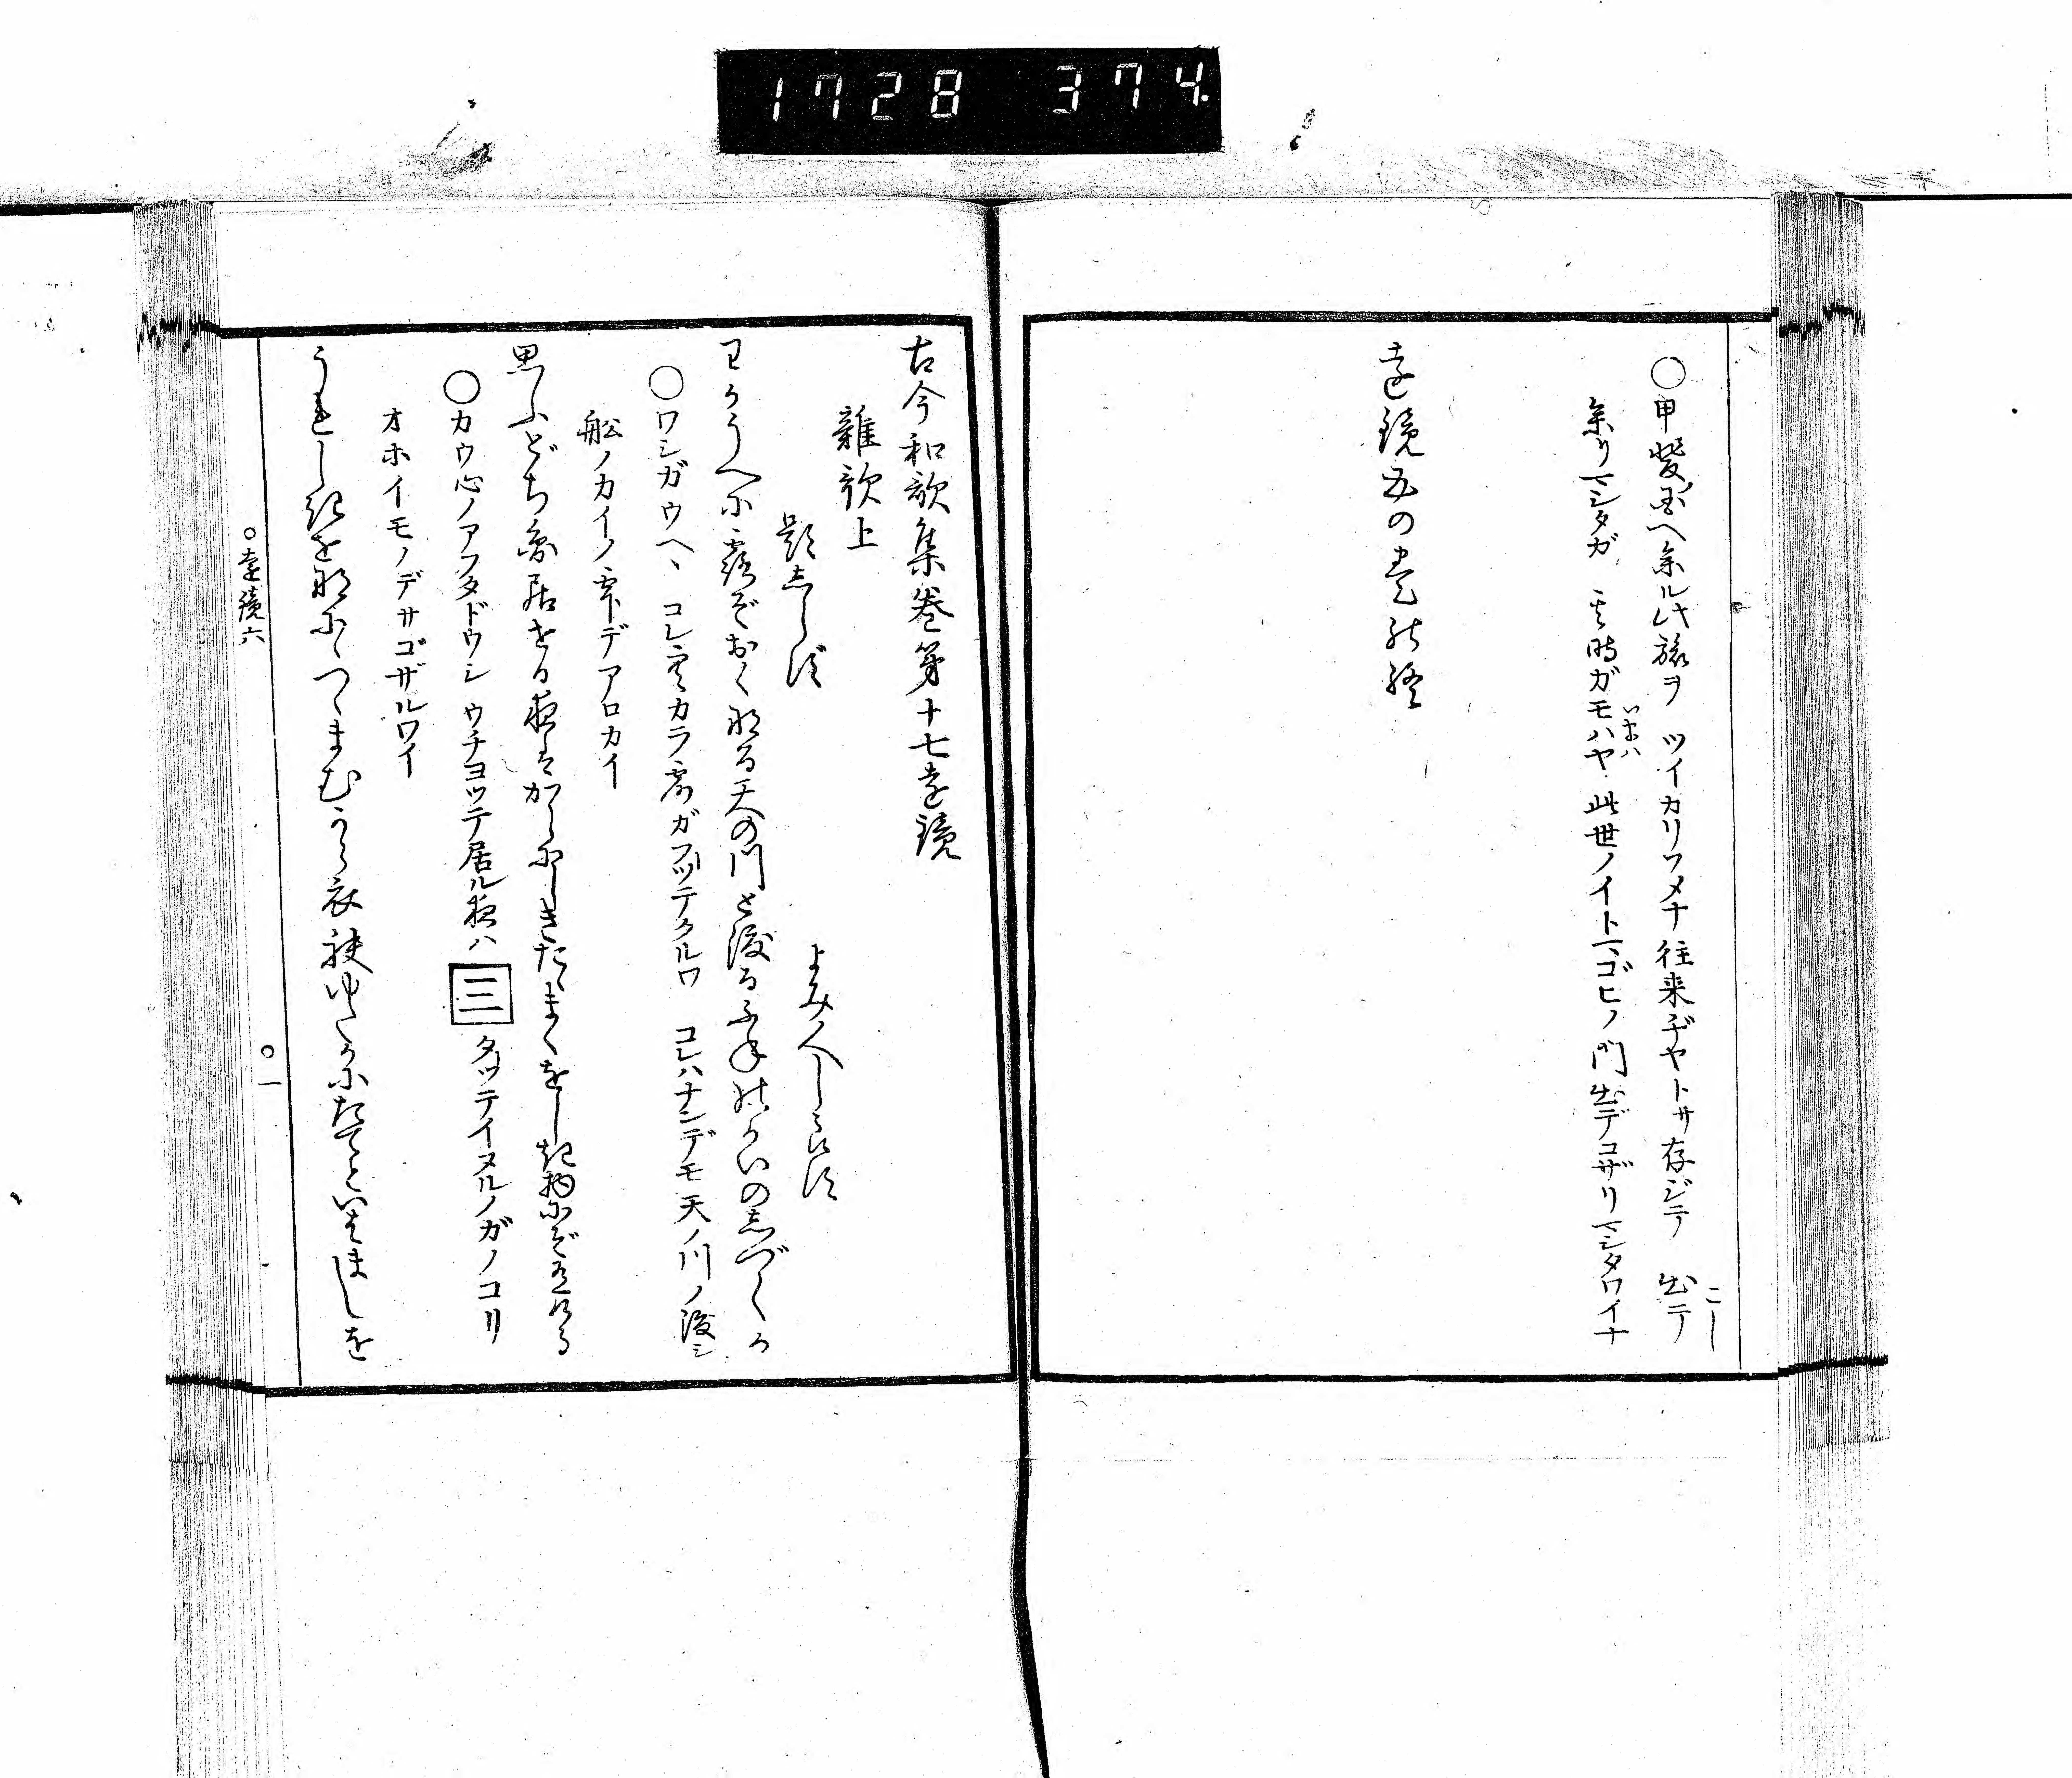 1728 374.
○甲斐国ヘ参ル此旅ヲ ツイカリソメナ往来ヂヤトサ存ジテ 出テ
こし
参リマシタガ 其時ガモハヤ 此世ノイトマゴヒノ門出デコザリマシタワイナ
いまハ
遠鏡五の巻能終
古今和歌集巻第十七遠鏡
雑歌上
題志らず
よみ人しらず
わがうへに露ぞおくなる天の川とほ渡る舟のかいの志づくか
○ワシガウヘヽ コレ空カラ露ガフツテクルワ コレハナンデモ天ノ川ノ渡シ
舩ノカイノ雫デアロカイ
思ふどち圓居せる夜はからにしきたゝまくをしき物にぞ有ける
○カウ心ノアフタドウシ ウチヨツテ居ル夜ハ 三 タツテイヌルノガノコリ
オホイモノデサゴザルワイ
うれしきを何につゝまむから衣袂ゆたかにたてといはましを
○遠鏡六
○一